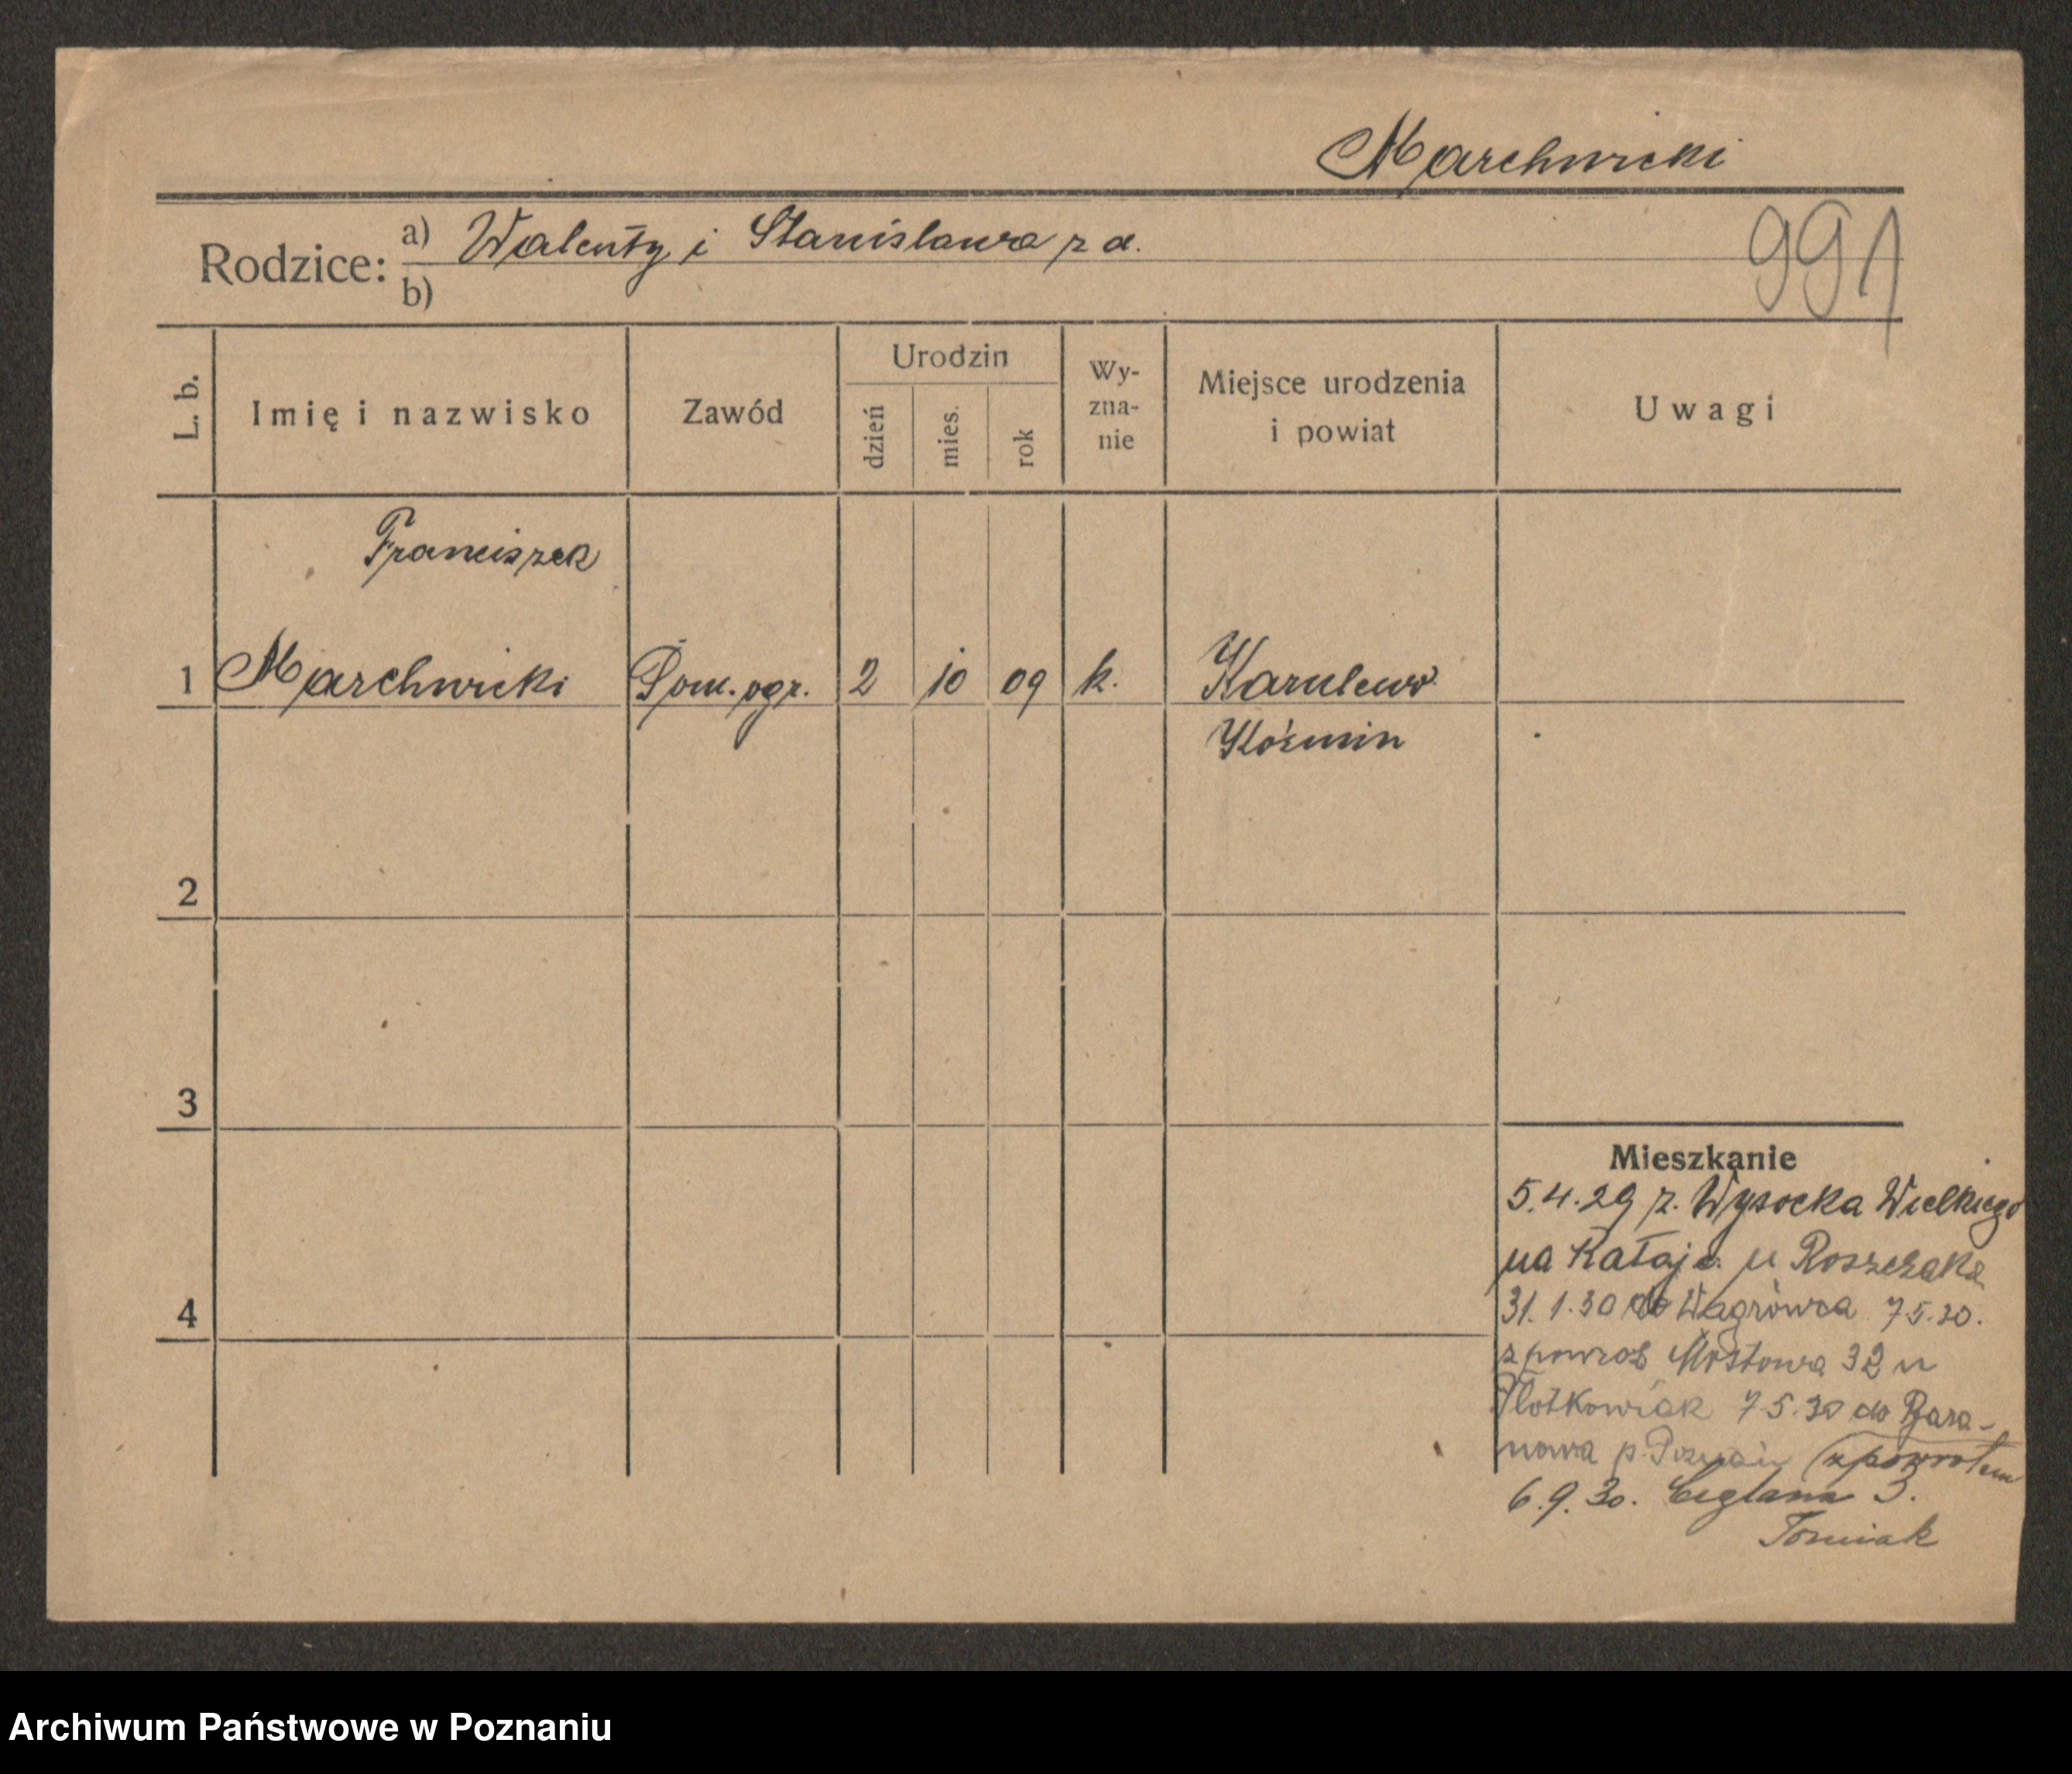 Marchwicki
Rodzice: a) Walenty i Stanisława z d.
b)
991
L. b.
Imię i nazwisko
Zawód
Urodzin
dzień
mies.
rok
Wy-
zna-
nie
Miejsce urodzenia
i powiat
Uwagi
Franciszek
1 Marchwicki Pom. ogr. 2 10 09 k.
Koźmin
2
3
4
Mieszkanie
5.4.29 z. Wysocka Wielkiego
na Rataje. u Roszczaka
31.1.30 do Wągrówca 7.5.30.
z powrot Mostowa 32 u
7.5.30 do Bara-
nowa p. Poznań z powrotem
6.9.30. Ceglana 3.
Tomiak
Archiwum Państwowe w Poznaniu